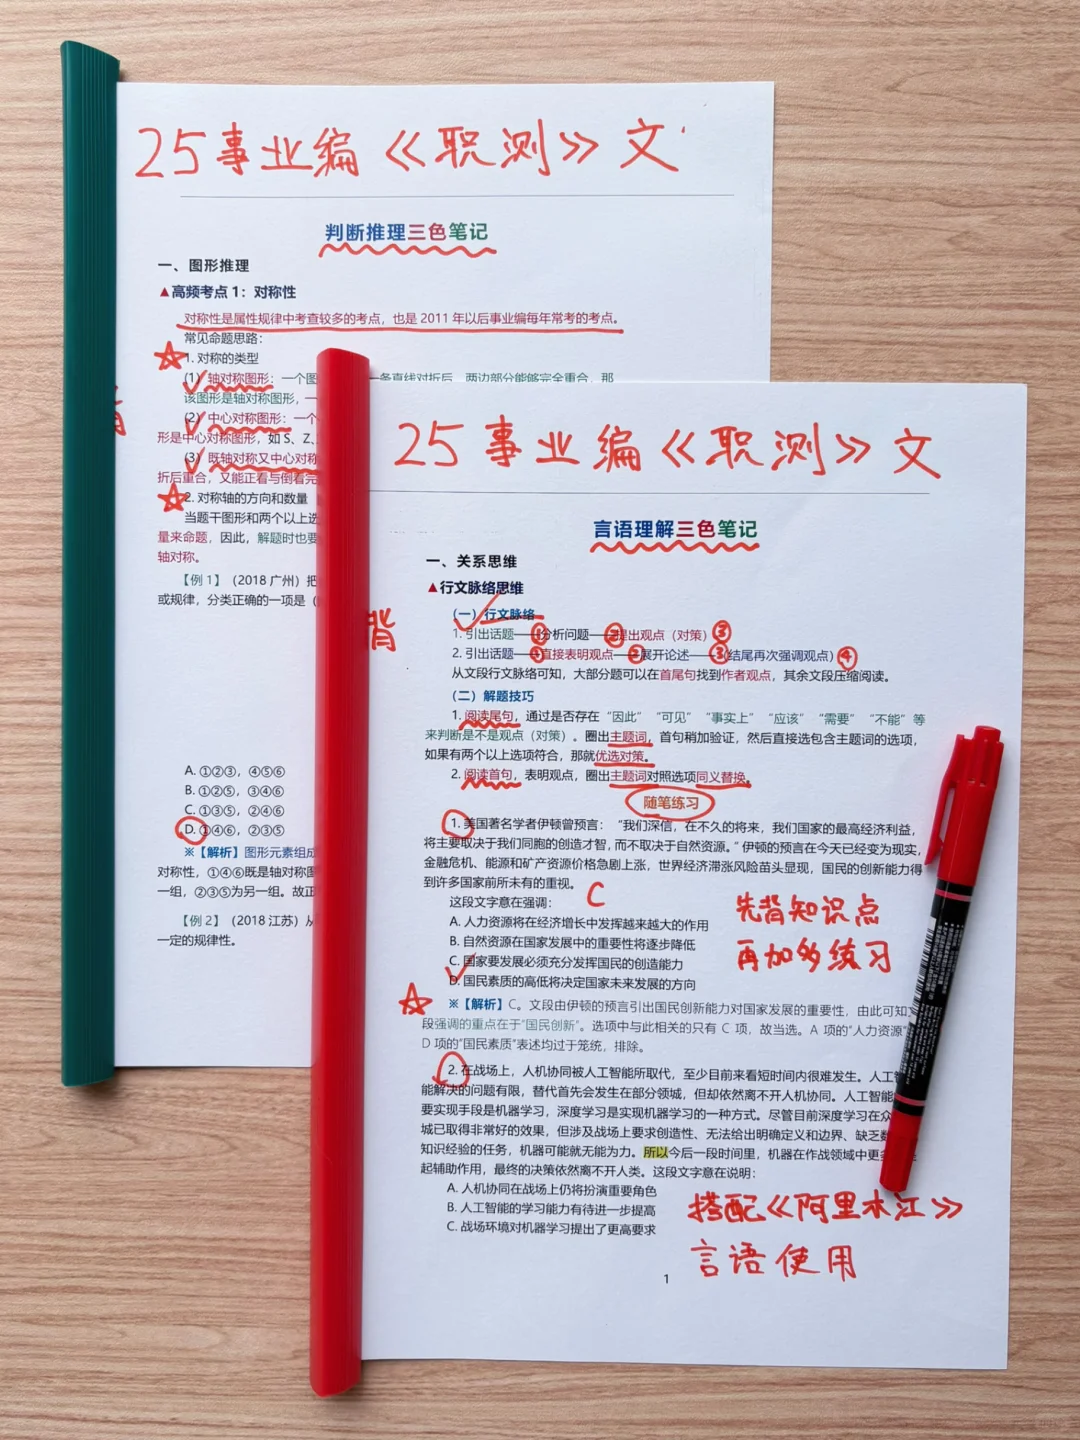 25事业编《职测》文
判断推理三色笔记
一、图形推理
▲高频考点1：对称性
对称性是属性规律中考查较多的考点，也是 2011 年以后事业编每年常考的考点。
常见命题思路：
1. 对称的类型
(1) 轴对称图形：一个图 一条直线对折后，两边部分能够完全重合，那
该图形是轴对称图形，一
(2) 中心对称图形：一个
形是中心对称图形，如 S、Z、
(3) 既轴对称又中心对称
折后重合，又能正看与倒看完
2. 对称轴的方向和数量
当题干图形和两个以上选
量来命题，因此，解题时也要
轴对称。
【例 1】（2018 广州）把
或规律，分类正确的一项是（
A. ①②③，④⑤⑥
B. ①②⑤，③④⑥
C. ①③⑤，②④⑥
D. ①④⑥，②③⑤
※【解析】图形元素组成
对称性，①④⑥既是轴对称图
一组，②③⑤为另一组。故正
【例 2】（2018 江苏）从
一定的规律性。
25事业编《职测》文
言语理解三色笔记
一、关系思维
▲行文脉络思维
背
（一）行文脉络
1. 引出话题——①分析问题——②提出观点（对策）③
2. 引出话题——①直接表明观点——②展开论述——③(结尾再次强调观点）④
从文段行文脉络可知，大部分题可以在首尾句找到作者观点，其余文段压缩阅读。
（二）解题技巧
1. 阅读尾句，通过是否存在“因此”“可见”“事实上”“应该”“需要”“不能”等
来判断是不是观点（对策）。圈出主题词，首句稍加验证，然后直接选包含主题词的选项，
如果有两个以上选项符合，那就优选对策。
2. 阅读首句，表明观点，圈出主题词对照选项同义替换。
随笔练习
1. 美国著名学者伊顿曾预言：“我们深信，在不久的将来，我们国家的最高经济利益，
将主要取决于我们同胞的创造才智，而不取决于自然资源。”伊顿的预言在今天已经变为现实，
金融危机、能源和矿产资源价格急剧上涨，世界经济滞涨风险苗头显现，国民的创新能力得
到许多国家前所未有的重视。
这段文字意在强调：
C
A. 人力资源将在经济增长中发挥越来越大的作用
B. 自然资源在国家发展中的重要性将逐步降低
C. 国家要发展必须充分发挥国民的创造能力
D. 国民素质的高低将决定国家未来发展的方向
先背知识点
再加多练习
※【解析】C。文段由伊顿的预言引出国民创新能力对国家发展的重要性，由此可知文
段强调的重点在于“国民创新”。选项中与此相关的只有 C 项，故当选。A 项的“人力资源”
D 项的“国民素质”表述均过于笼统，排除。
2. 在战场上，人机协同被人工智能所取代，至少目前来看短时间内很难发生。人工智
能解决的问题有限，替代首先会发生在部分领域，但却依然离不开人机协同。人工智能
要实现手段是机器学习，深度学习是实现机器学习的一种方式。尽管目前深度学习在众
城已取得非常好的效果，但涉及战场上要求创造性、无法给出明确定义和边界、缺乏
知识经验的任务，机器可能就无能为力。所以今后一段时间里，机器在作战领域中更多
起辅助作用，最终的决策依然离不开人类。这段文字意在说明：
A. 人机协同在战场上仍将扮演重要角色
B. 人工智能的学习能力有待进一步提高
C. 战场环境对机器学习提出了更高要求
搭配《阿里木江》
言语使用
1